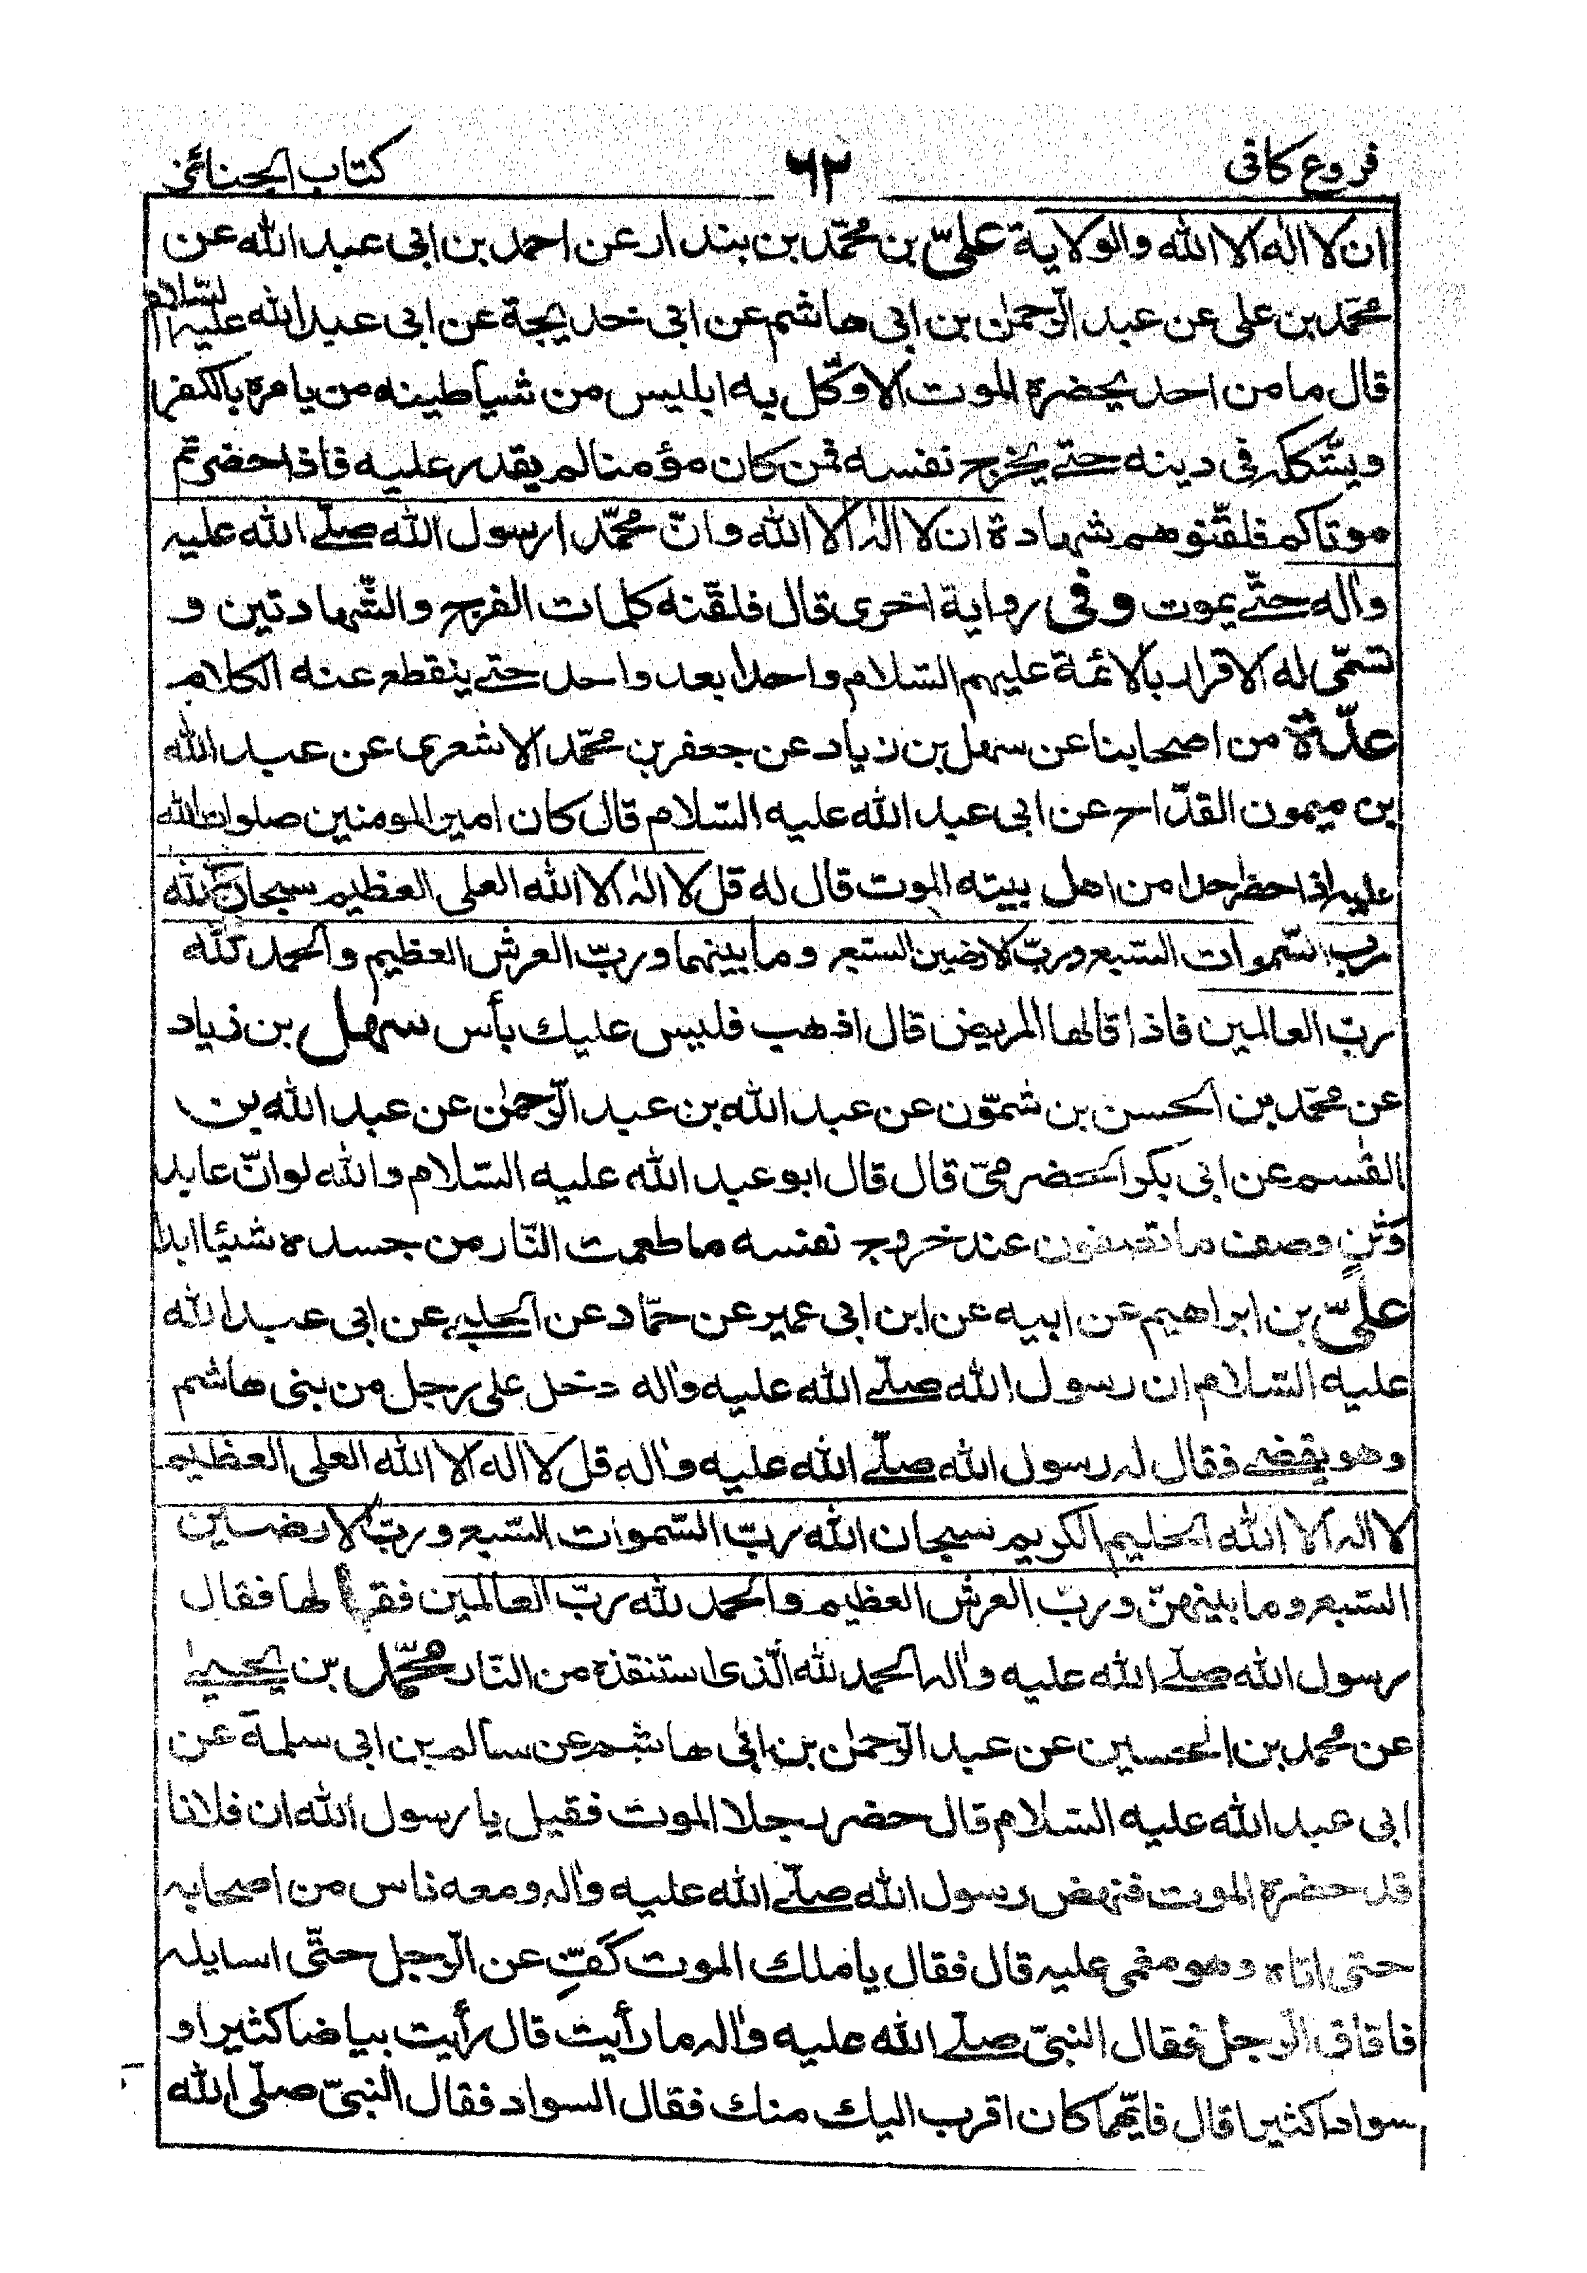 فروع کافی ٦٢ كتاب الجنائز
ان لا اله الا الله والولاية علىّ بن محمّد بن بندار عن احمد بن ابى عبد الله عن
محمّد بن على عن عبد الرّحمٰن بن ابى هاشم عن ابى خديجة عن ابى عبد الله عليه السّلام
قال ما من احد يحضرة الموت الا وكّل به ابليس من شياطينه من يامره بالكفر
ويشككه فى دينه حتّے يخرج نفسه فمن كان مؤمنا لم يقدر عليه فاذا حضرتم
موتاكم فلقّنوهم شهادة ان لا الٰه الا الله وانّ محمّدا رسول الله صلّے الله عليه
واٰله حتّے يموت وفى رواية اخرى قال فلقّنه كلمات الفرج والشّهادتين و
تسمّى له الاقرار بالائمّة عليهم السّلام واحدا بعد واحد حتے ينقطع عنه الكلام
عدّة من اصحابنا عن سهل بن زياد عن جعفر بن محمّد الاشعرى عن عبد الله
بن ميمون القدّاح عن ابى عبد الله عليه السّلام قال كان امير المومنين صلوات الله
عليه اذا حضر احدا من اهل بيته الموت قال له قل لا الٰه الا الله العلى العظيم سبحان الله
رب السّموات السّبع وربّ الارضين السّبع وما بينهما وربّ العرش العظيم والحمد لله
ربّ العالمين فاذا قالها المريض قال اذهب فليس عليك بأس سهل بن زياد
عن محمّد بن الحسن بن شمّون عن عبد الله بن عبد الرّحمٰن عن عبد الله بن
القٰسم عن ابى بكر الحضرمىّ قال قال ابو عبد الله عليه السّلام والله لو انّ عابد
وَثَنٍ وصف ما تصفون عند خروج نفسه ما طعمت النّار من جسده شيئا ابدا
علىّ بن ابراهيم عن ابيه عن ابن ابى عمير عن حمّاد عن الحلبے عن ابى عبد الله
عليه السّلام ان رسول الله صلّے الله عليه واٰله دخل على رجل من بنى هاشم
وهو يقضے فقال له رسول الله صلّے الله عليه واٰله قل لا اله الا الله العلى العظيم
لا اله الا الله الحليم الكريم سبحان الله ربّ السّموات السّبع وربّ الارضين
السّبع وما بينهنّ وربّ العرش العظيم والحمد لله ربّ العالمين فقالها فقال
رسول الله صلّے الله عليه واٰله الحمد لله الّذى استنقذه من النّار محمّد بن يحيےٰ
عن محمد بن الحسين عن عبد الرّحمٰن بن ابى هاشم عن سالم بن ابى سلمة عن
ابى عبد الله عليه السّلام قال حضر رجلا الموت فقيل يا رسول الله ان فلانا
قد حضرة الموت فنهض رسول الله صلّے الله عليه واٰله ومعه ناس من اصحابه
حتى اتاه وهو مغمى عليه قال فقال يا ملك الموت كَفِّ عن الرّجل حتّى اسايله
فافاق الرّجل فقال النبىّ صلّے الله عليه واٰله ما رأيت قال رأيت بياضا كثيرا و
سوادا كثيرا قال فايّهما كان اقرب اليك منك فقال السواد فقال النبىّ صلّى الله